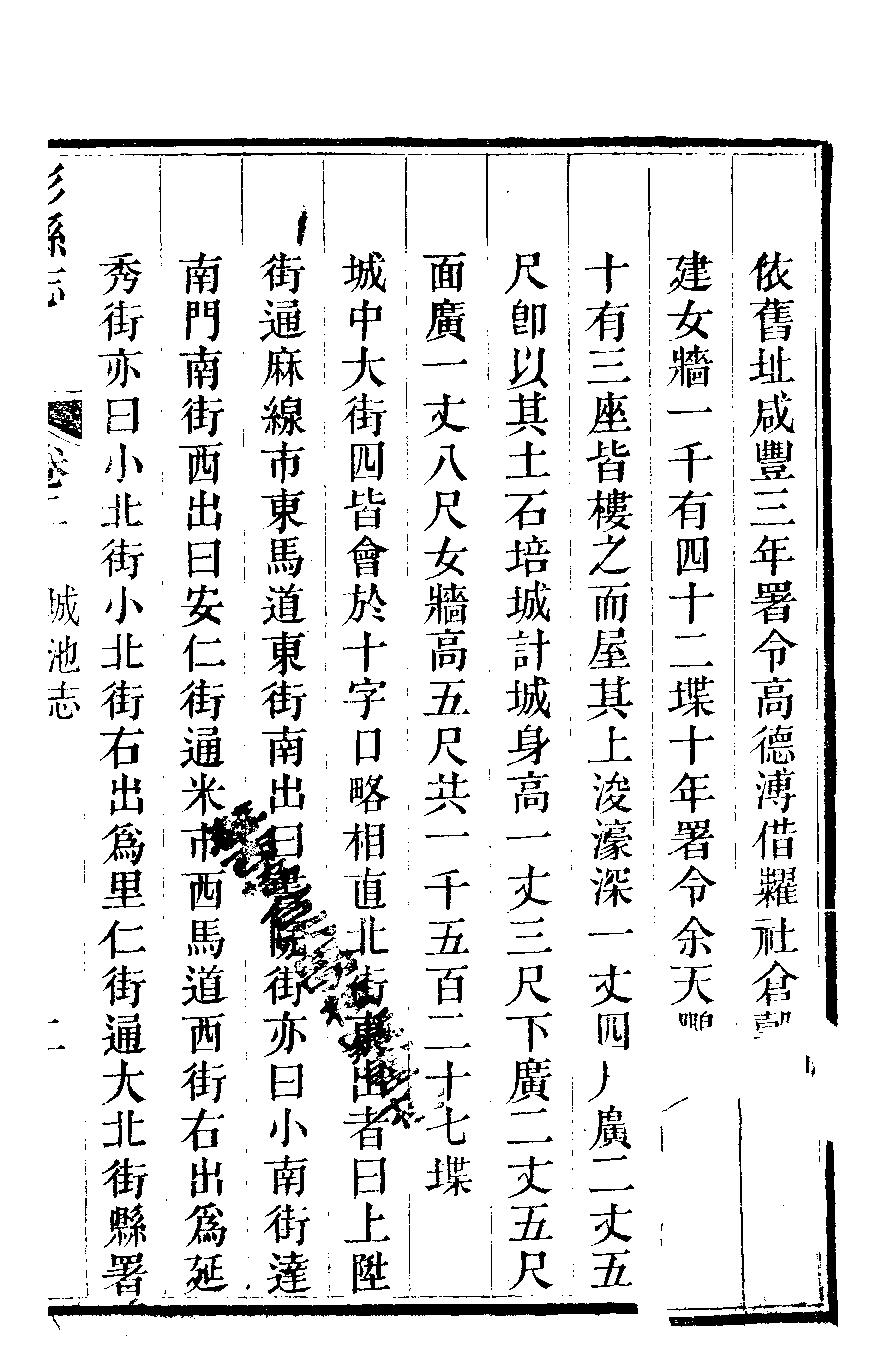 依舊址咸豐三年署令高德溥借糶社倉
建女牆一千有四十二堞十年署令余天
十有三座皆樓之而屋其上浚濠深一丈四 廣二丈五
尺卽以其土石培城計城身高一丈三尺下廣二丈五尺
面廣一丈八尺女牆高五尺共一千五百二十七堞
城中大街四皆會於十字口略相直北街東出者曰上陞
街通麻線市東馬道東街南出曰 院街亦曰小南街達
南門南街西出曰安仁街通米市西馬道西街右出爲延
秀街亦曰小北街小北街右出爲里仁街通大北街縣署
縣志 卷二 城池志 二